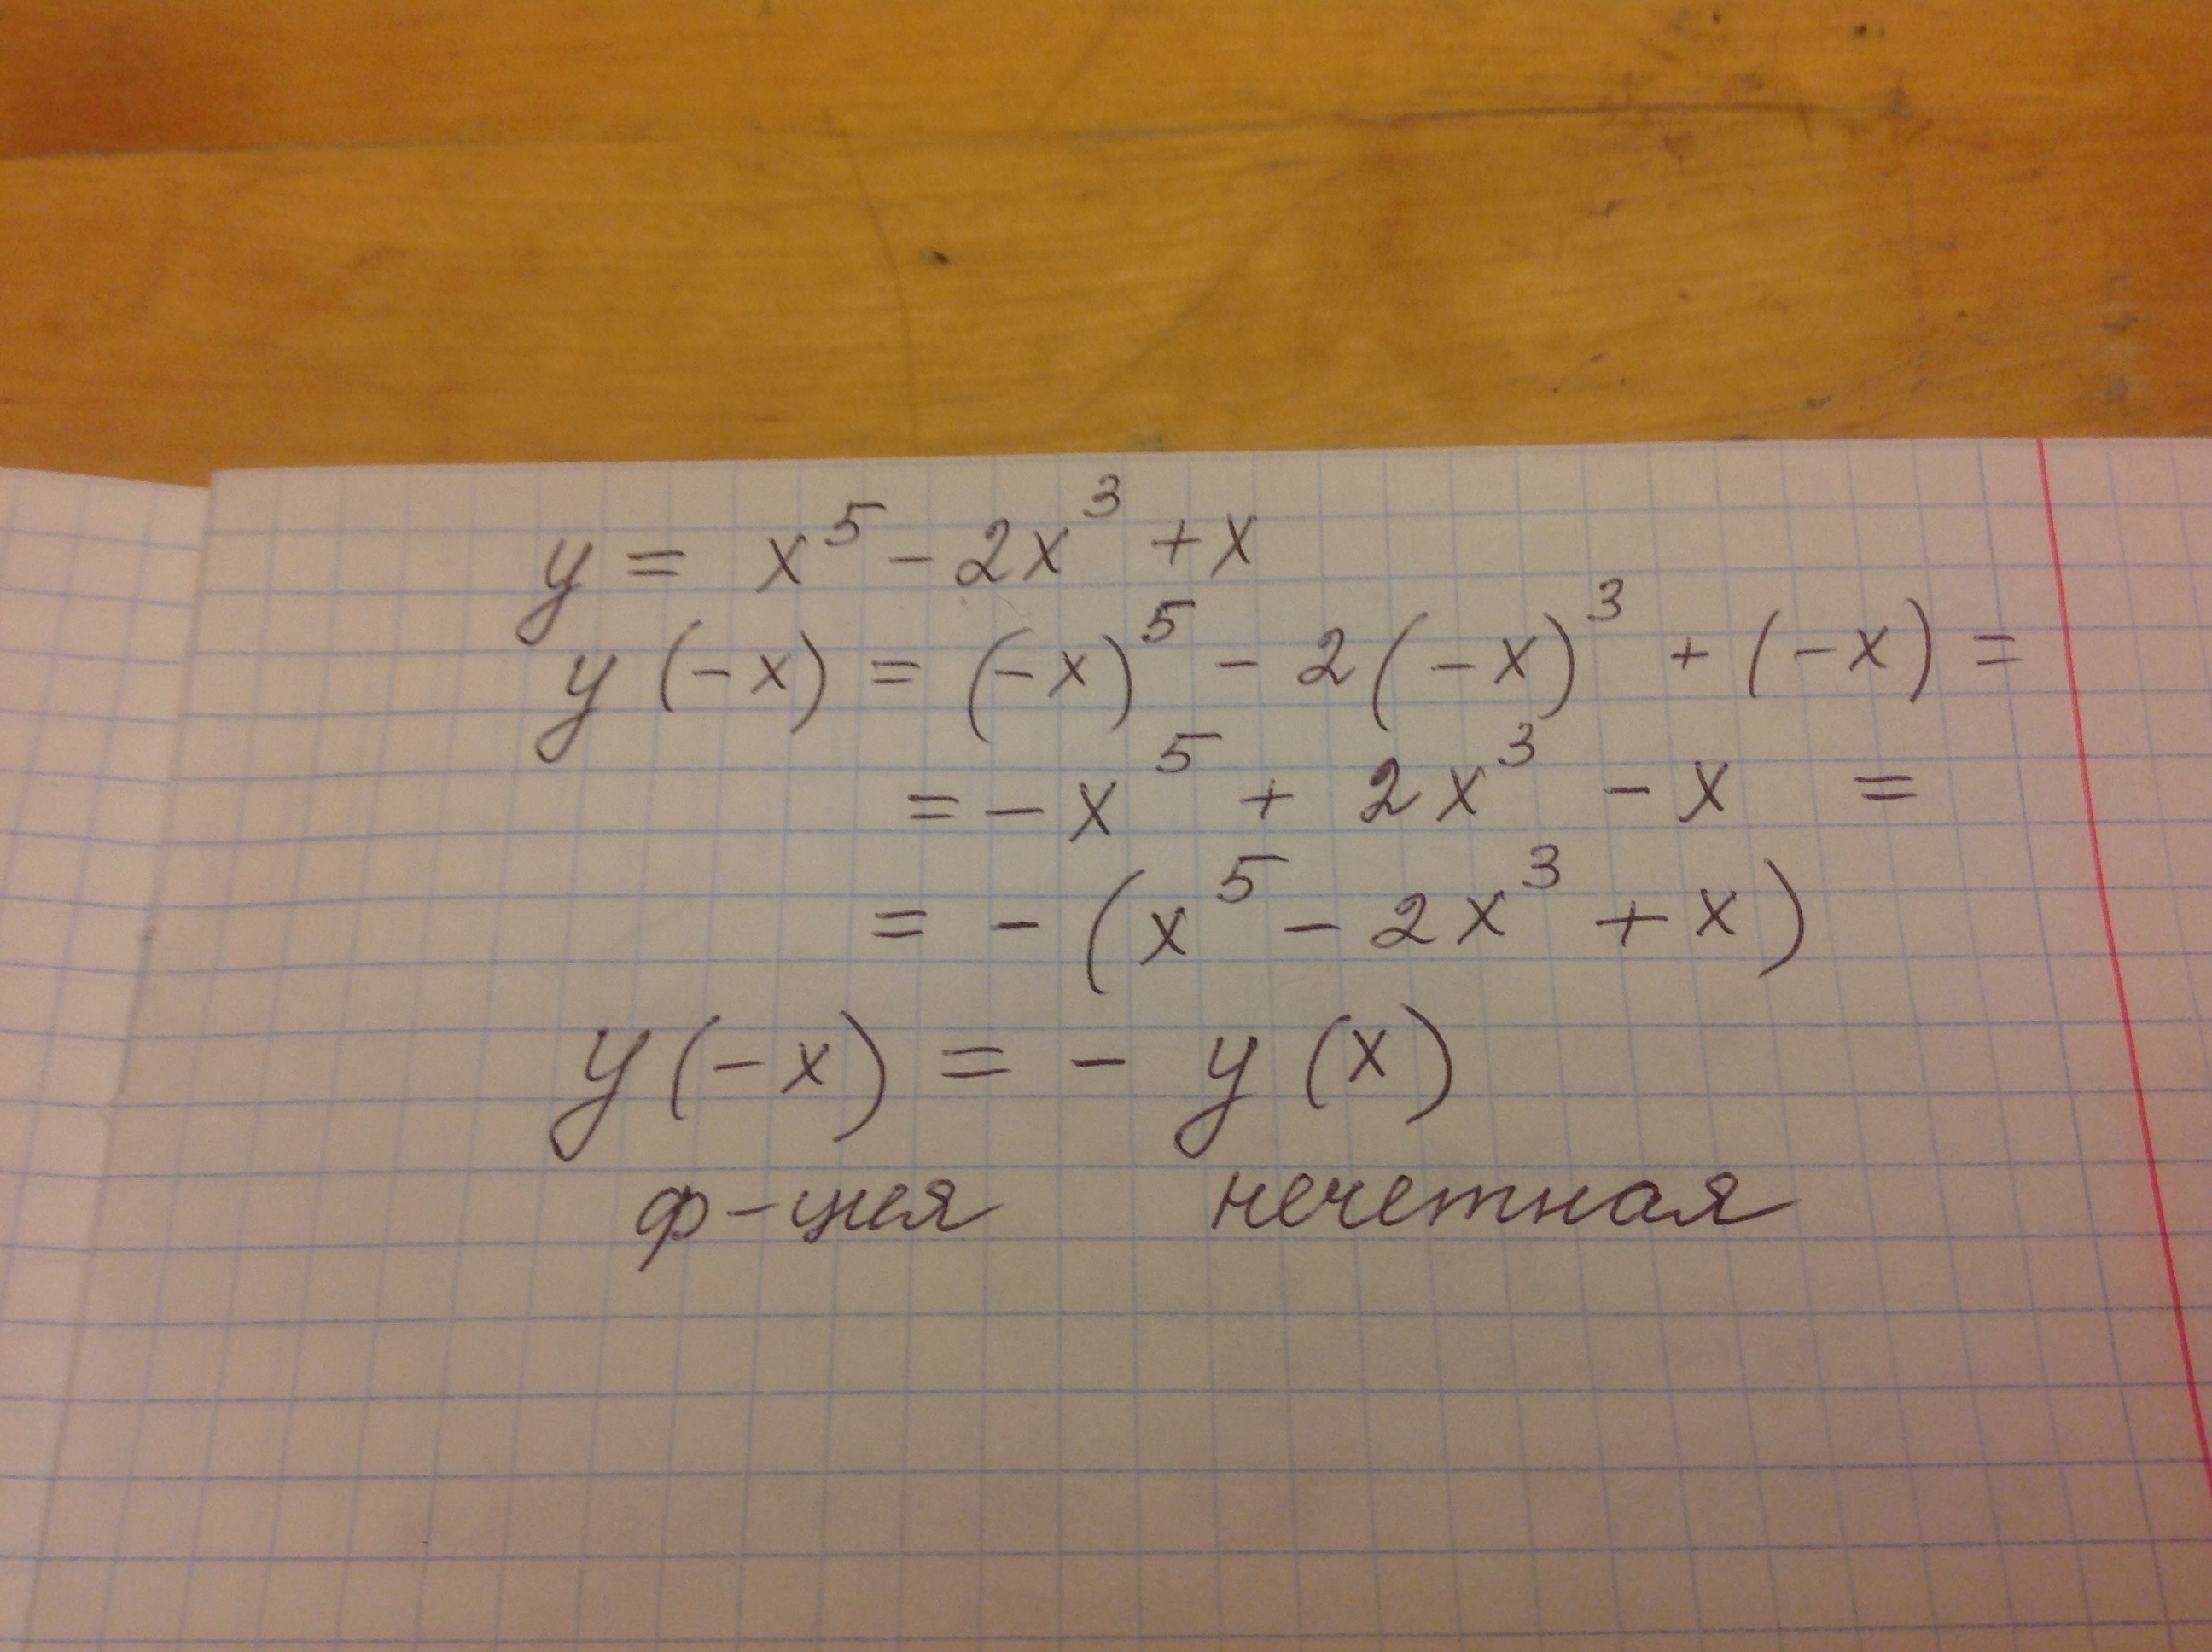 y = x⁵ - 2x³ + x
y(-x) = (-x)⁵ - 2(-x)³ + (-x) =
= - x⁵ + 2x³ - x =
= - (x⁵ - 2x³ + x)
y(-x) = - y(x)
ф-ция нечетная